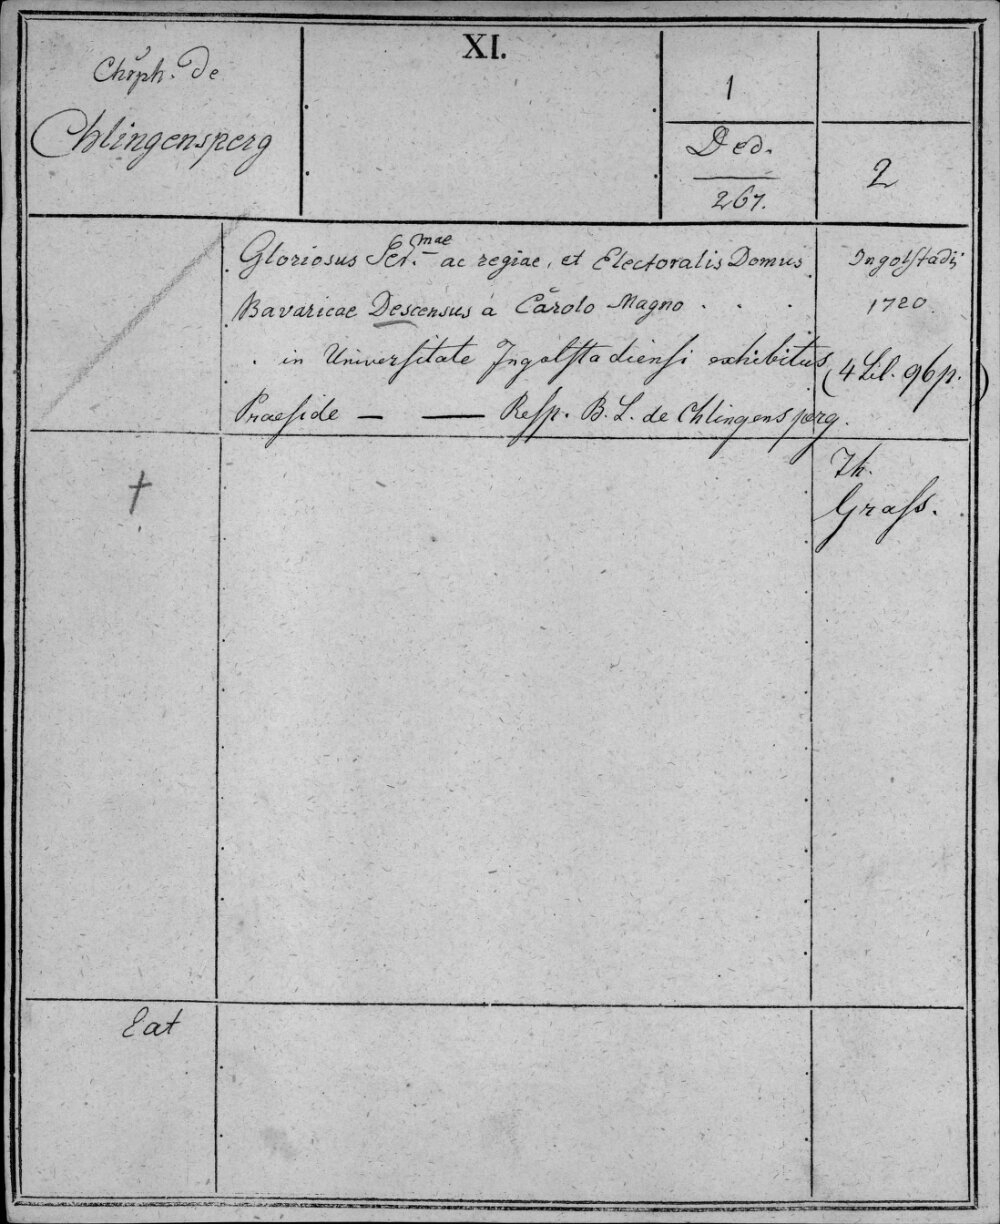 Chrph. De
Chlingensperg
XI.
1
Ded.
267.
2
Gloriosus Ser.mae ac regiae, et Electoralis Domus
Bavaricae Descensus á Cărolo Magno . . .
. in Universitate Ingolstadiensi exhibitus
Praeside — — Resp. B. L. de Chlingensperg.
Ingolstadij
1720.
(4 Lil. 96 p.)
†
Th.
Grass.
Lat